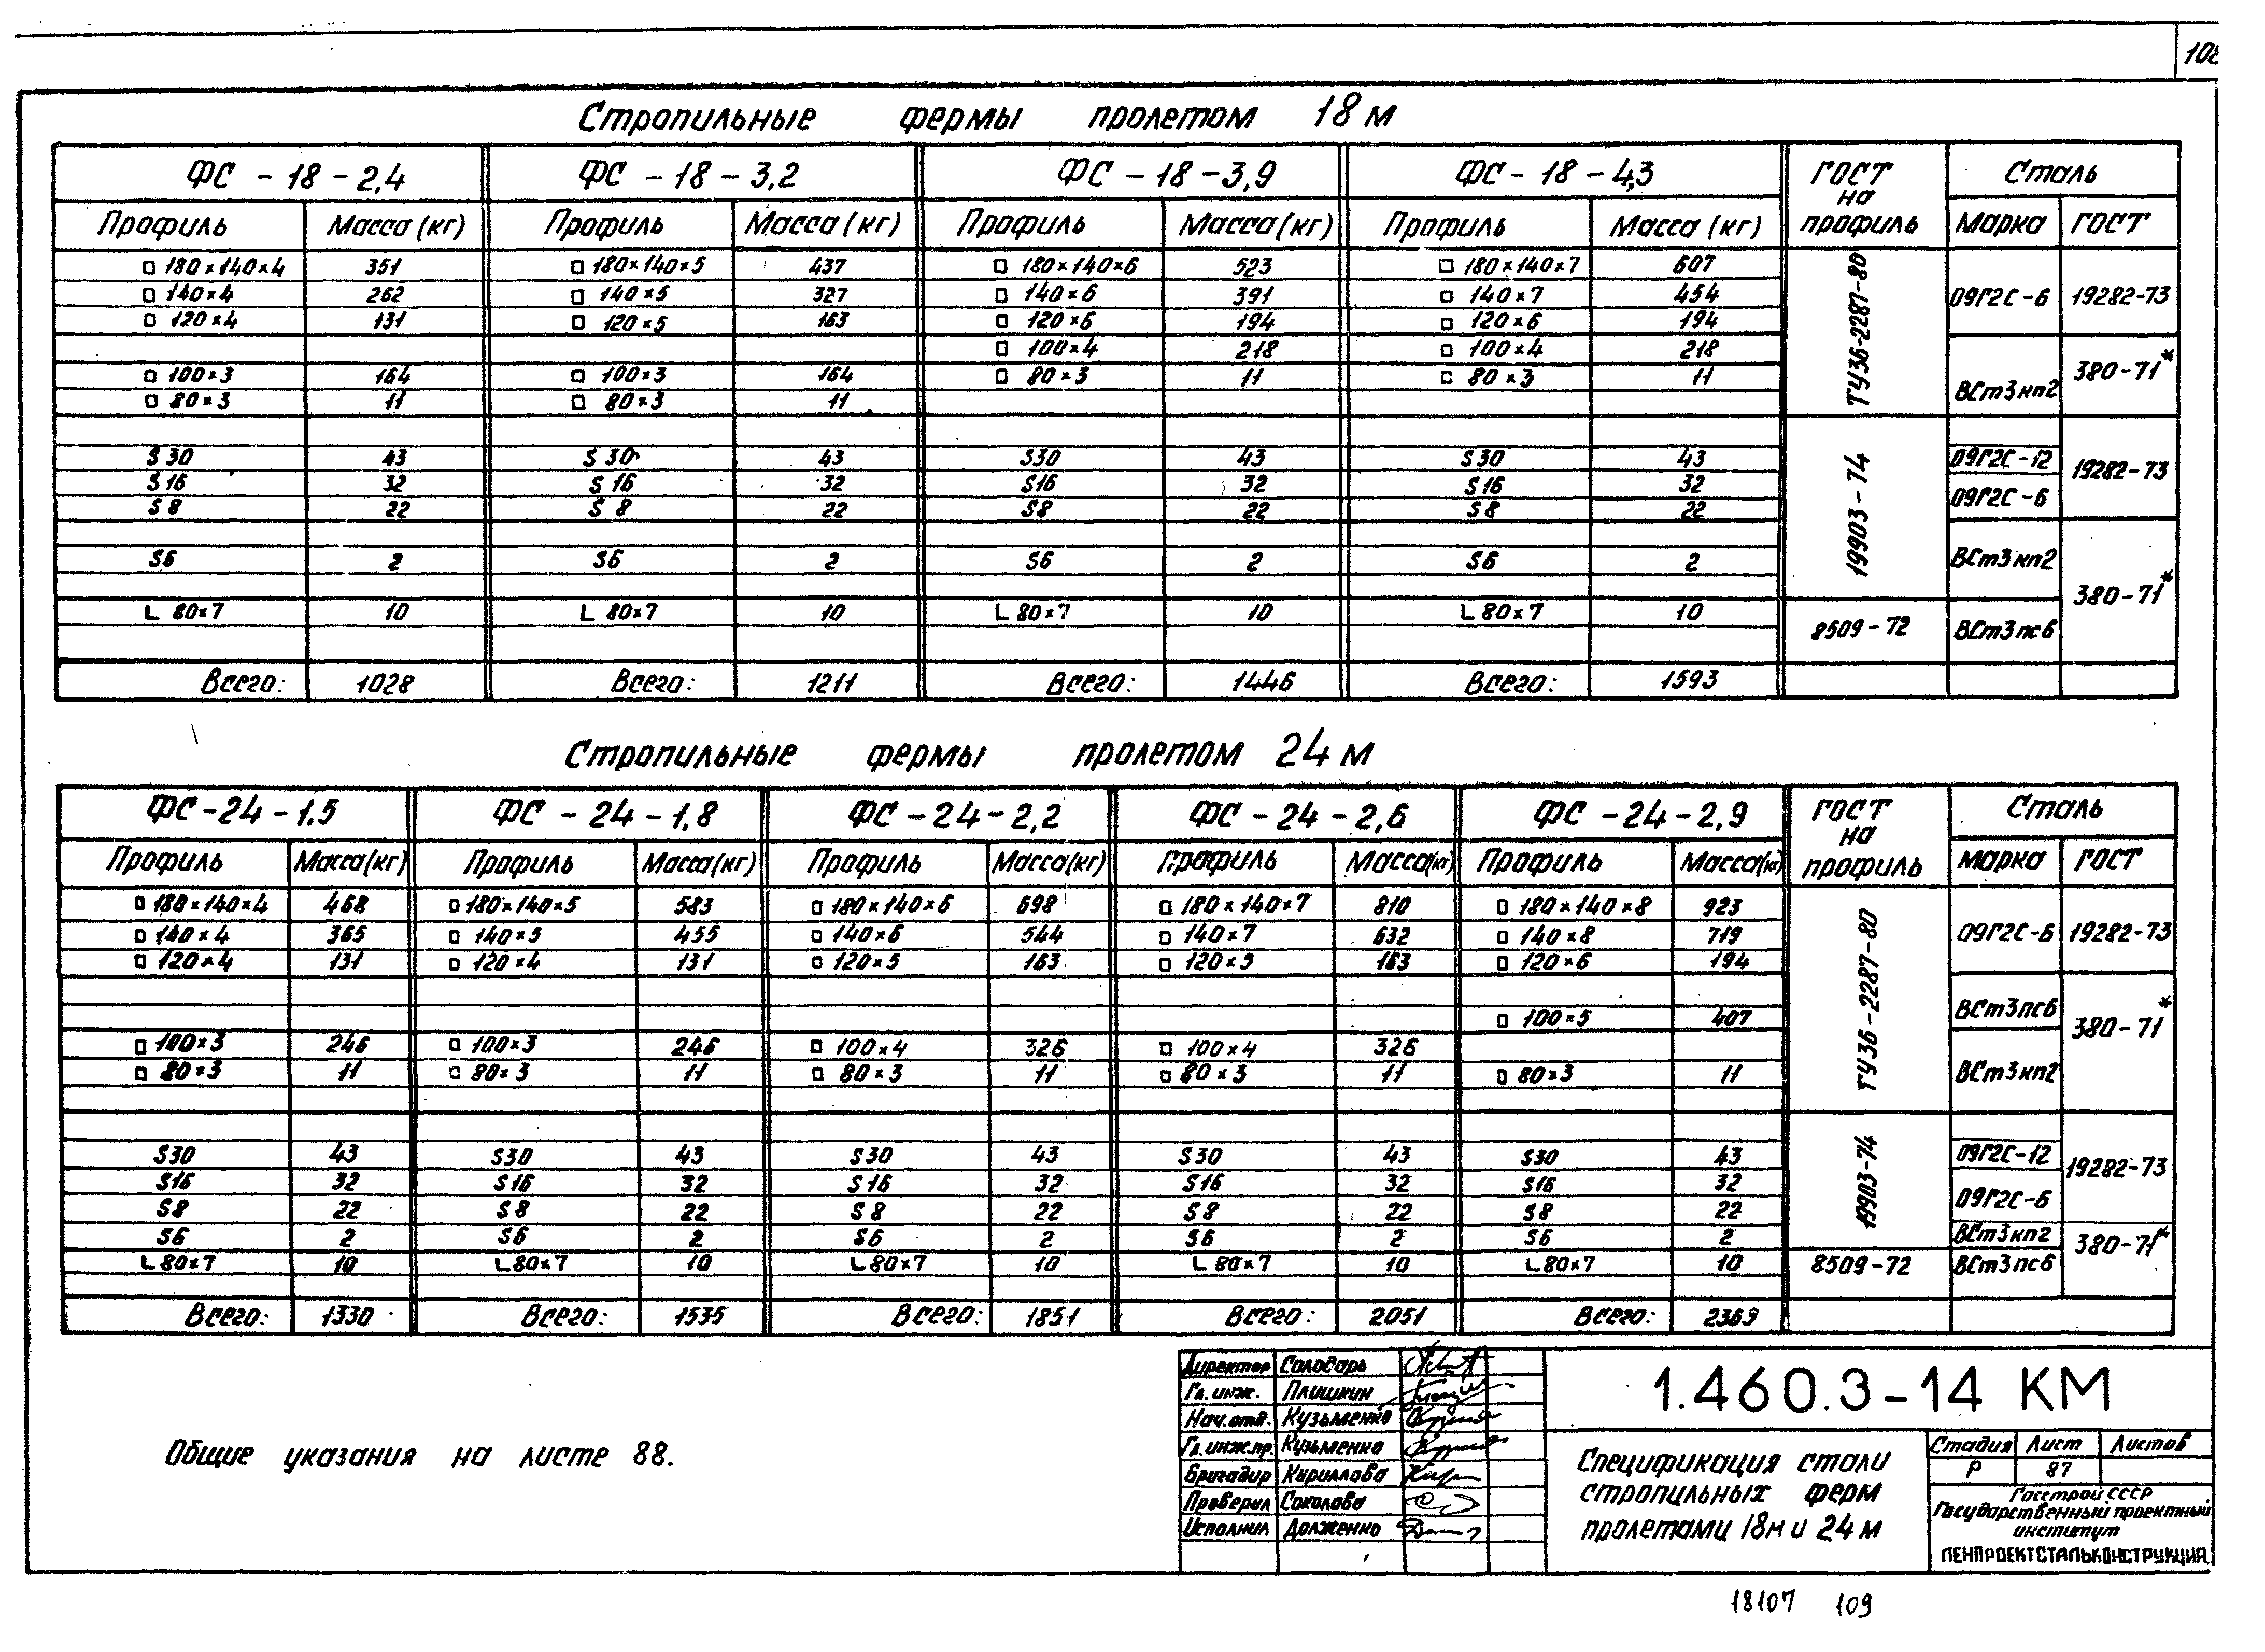 108
Стропильные фермы пролетом 18 м
ФС - 18 - 2,4 ФС - 18 - 3,2 ФС - 18 - 3,9 ФС - 18 - 4,3 ГОСТ на профиль Сталь
Профиль Масса (кг) Профиль Масса (кг) Профиль Масса (кг) Профиль Масса (кг) Марка ГОСТ
□ 180×140×4 351 □ 180×140×5 437 □ 180×140×6 523 □ 180×140×7 607 ТУ36-2287-80
□ 140×4 262 □ 140×5 327 □ 140×6 391 □ 140×7 454 09Г2С-6 19282-73
□ 120×4 131 □ 120×5 163 □ 120×6 194 □ 120×6 194
□ 100×4 218 □ 100×4 218
□ 100×3 164 □ 100×3 164 □ 80×3 11 □ 80×3 11 380-71*
□ 80×3 11 □ 80×3 11 ВСт3кп2
S 30 43 S 30 43 S30 43 S30 43 19903-74 09Г2С-12 19282-73
S 16 32 S 16 32 S16 32 S16 32
S 8 22 S 8 22 S8 22 S8 22 09Г2С-6
S6 2 S6 2 S6 2 S6 2 ВСт3кп2 380-71*
L 80×7 10 L 80×7 10 L 80×7 10 L 80×7 10 8509-72 ВСт3пс6
Всего: 1028 Всего: 1211 Всего: 1446 Всего: 1593
Стропильные фермы пролетом 24 м
ФС - 24 - 1.5 ФС - 24 - 1,8 ФС - 24 - 2,2 ФС - 24 - 2,6 ФС - 24 - 2,9 ГОСТ на профиль Сталь
Профиль Масса (кг) Профиль Масса (кг) Профиль Масса (кг) Профиль Масса (кг) Профиль Масса (кг) Марка ГОСТ
□ 180×140×4 468 □ 180×140×5 583 □ 180×140×6 698 □ 180×140×7 810 □ 180×140×8 923 ТУ36-2287-80
□ 140×4 365 □ 140×5 455 □ 140×6 544 □ 140×7 632 □ 140×8 719 09Г2С-6 19282-73
□ 120×4 131 □ 120×4 131 □ 120×5 163 □ 120×5 163 □ 120×6 194
□ 100×5 407 ВСт3пс6 380-71*
□ 100×3 246 □ 100×3 246 □ 100×4 326 □ 100×4 326
□ 80×3 11 □ 80×3 11 □ 80×3 11 □ 80×3 11 □ 80×3 11 ВСт3кп2
S30 43 S30 43 S30 43 S30 43 S30 43 19903-74 09Г2С-12 19282-73
S16 32 S16 32 S16 32 S16 32 S16 32
S8 22 S8 22 S8 22 S8 22 S8 22 09Г2С-6
S6 2 S6 2 S6 2 S6 2 S6 2 ВСт3кп2 380-71*
L 80×7 10 L 80×7 10 L 80×7 10 L 80×7 10 L 80×7 10 8509-72 ВСт3пс6
Всего: 1330 Всего: 1535 Всего: 1851 Всего: 2051 Всего: 2363
Общие указания на листе 88.
Директор Солодарь
Гл. инж. Плишкин
Нач. отд. Кузьменко
Гл. инж. пр. Кузьменко
Бригадир Кириллова
Проверил Соколова
Исполнил Долженко
1.460.3-14 КМ
Спецификация стали
стропильных ферм
пролетами 18м и 24м
Стадия Лист Листов
Р 87
Госстрой СССР
Государственный проектный
институт
ЛЕНПРОЕКТСТАЛЬКОНСТРУКЦИЯ
18107 109